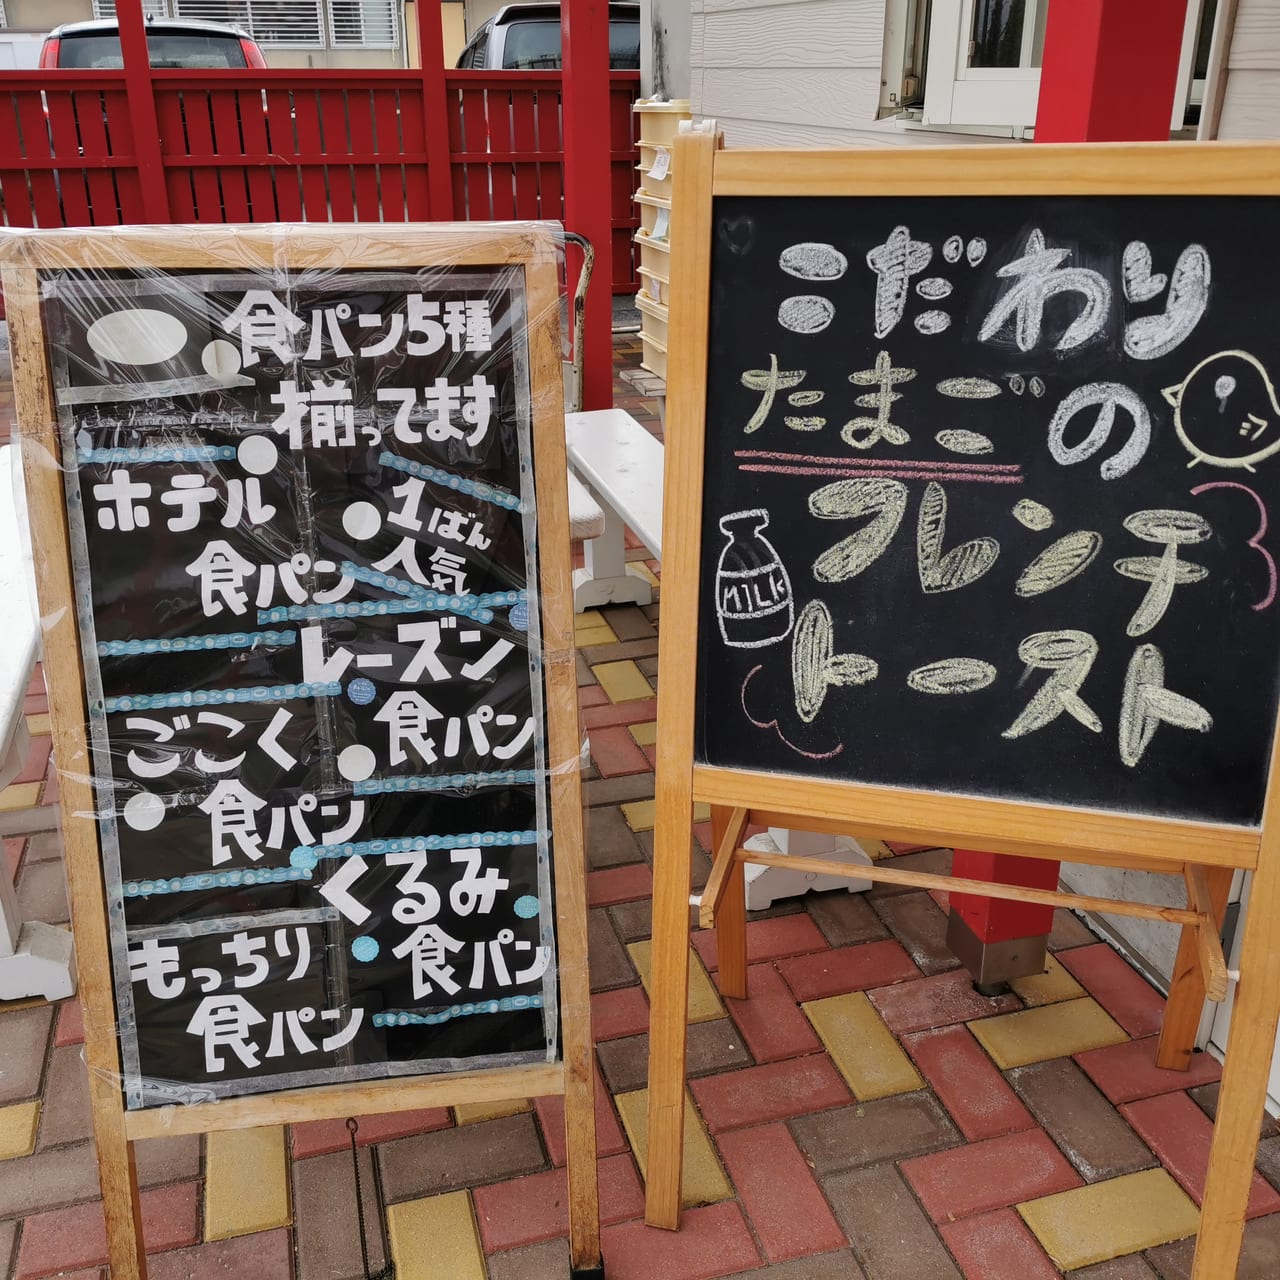 食パン5種
揃ってます
ホテル
食パン
1ばん
人気
レーズン
食パン
ごこく
食パン
くるみ
食パン
もっちり
食パン
こだわり
たまごの
フレンチ
トースト
MILK